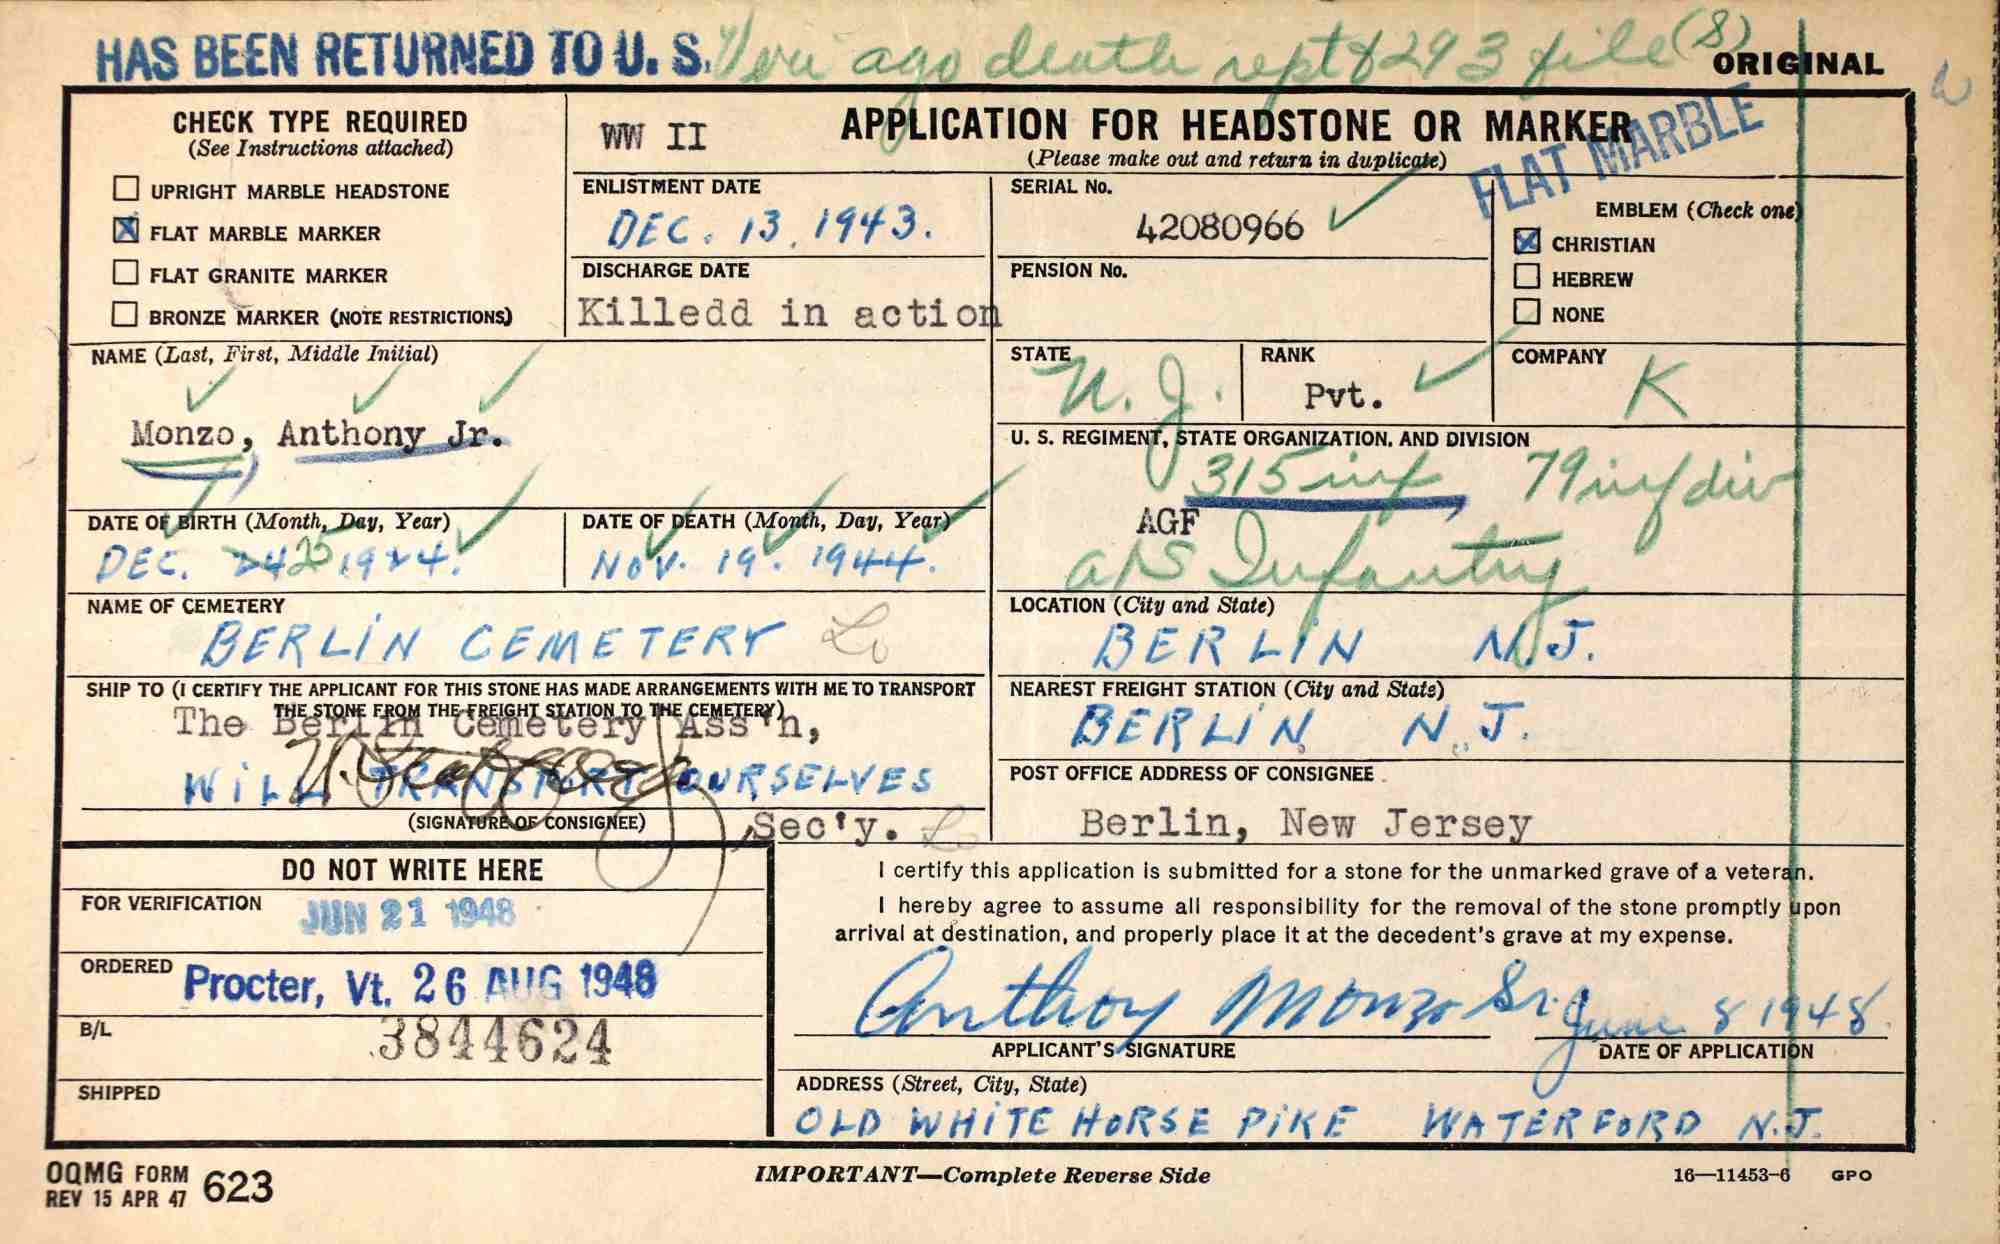 HAS BEEN RETURNED TO U. S.
Veri ago death rept & 293 file (S)
ORIGINAL
CHECK TYPE REQUIRED
(See Instructions attached)
UPRIGHT MARBLE HEADSTONE
X FLAT MARBLE MARKER
FLAT GRANITE MARKER
BRONZE MARKER (NOTE RESTRICTIONS)
WW II
APPLICATION FOR HEADSTONE OR MARKER
(Please make out and return in duplicate)
FLAT MARBLE
ENLISTMENT DATE
DEC. 13, 1943.
SERIAL No.
42080966
EMBLEM (Check one)
X CHRISTIAN
HEBREW
NONE
DISCHARGE DATE
Killedd in action
PENSION No.
NAME (Last, First, Middle Initial)
Monzo, Anthony Jr.
STATE
N. J.
RANK
Pvt.
COMPANY
K
U. S. REGIMENT, STATE ORGANIZATION, AND DIVISION
315 inf 79 inf div
AGF
Infantry
DATE OF BIRTH (Month, Day, Year)
DEC. 24 25 1924.
DATE OF DEATH (Month, Day, Year)
NOV. 19. 1944.
NAME OF CEMETERY
BERLIN CEMETERY
LOCATION (City and State)
BERLIN N.J.
SHIP TO (I CERTIFY THE APPLICANT FOR THIS STONE HAS MADE ARRANGEMENTS WITH ME TO TRANSPORT
THE STONE FROM THE FREIGHT STATION TO THE CEMETERY)
The Berlin Cemetery Ass'n,
WILL TRANSPORT OURSELVES
(SIGNATURE OF CONSIGNEE)
,Sec'y.
NEAREST FREIGHT STATION (City and State)
BERLIN N.J.
POST OFFICE ADDRESS OF CONSIGNEE
Berlin, New Jersey
DO NOT WRITE HERE
FOR VERIFICATION
JUN 21 1948
ORDERED
Procter, Vt. 26 AUG 1948
B/L
3844624
SHIPPED
I certify this application is submitted for a stone for the unmarked grave of a veteran.
I hereby agree to assume all responsibility for the removal of the stone promptly upon
arrival at destination, and properly place it at the decedent's grave at my expense.
Anthoy Monzo Sr. June 8 1948.
APPLICANT'S SIGNATURE
DATE OF APPLICATION
ADDRESS (Street, City, State)
OLD WHITE HORSE PIKE WATERFORD N.J.
OQMG FORM
REV 15 APR 47 623
IMPORTANT—Complete Reverse Side
16—11453-6 GPO